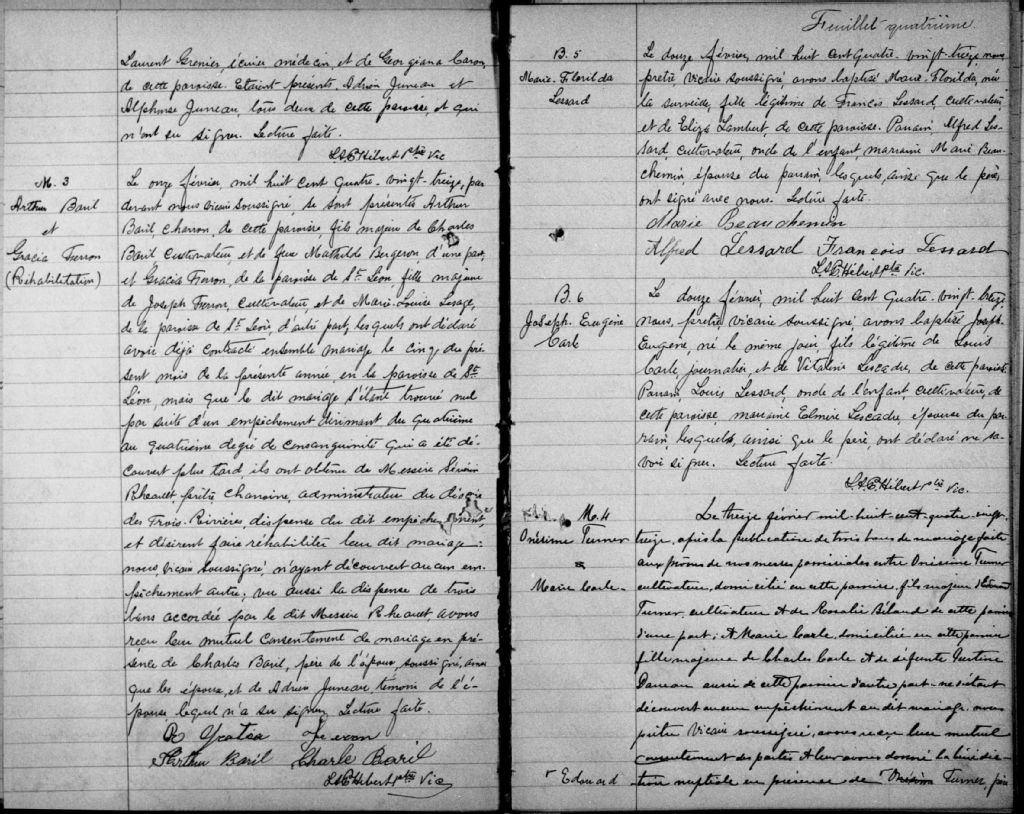 Laurent Grenier, écuier médecin, et de Georgiana Caron,
de cette paroisse. Etaient présents Adrien Juneau et
Alphonse Juneau, tous deux de cette paroisse, et qui
n'ont su signer. Lecture faite.
Ls. E. Hébert Ptre Vic
M. 3
Arthur Baril
et
Gracia Ferron
(Réhabilitation)
Le onze février, mil huit cent quatre-vingt-treize, par
devant nous vicaire soussigné, se sont présentés Arthur
Baril charron, de cette paroisse, fils majeur de Charles
Baril cultivateur et de feue Mathilde Bergeron d'une part,
et Gracia Ferron, de la paroisse de St. Léon, fille majeure
de Joseph Ferron, cultivateur et de Marie-Louise Lesage,
de la paroisse de St. Léon, d'autre part, lesquels ont déclaré
avoir déjà contracté ensemble mariage le cinq du pré-
sent mois de la présente année, en la paroisse de St.
Léon, mais que le dit mariage s'étant trouvé nul
par suite d'un empêchement dirimant du quatrième
au quatrième degré de consanguinité qui a été dé-
couvert plus tard ils ont obtenu de Messire Sévérin
Rheault, prêtre, chanoine, administrateur du diocèse
des Trois-Rivières, dispense du dit empêchement
et désirent faire réhabiliter leur dit mariage:
nous, vicaire soussigné, n'ayant découvert aucun em-
pêchement autre; vu aussi la dispense de trois
bans accordée par le dit Messire Rheault, avons
reçu leur mutuel consentement de mariage en pré-
sence de Charles Baril, père de l'époux, soussigné, ainsi
que les époux, et de Adrien Juneau, témoin de l'é-
pouse, lequel n'a su signer. Lecture faite.
Arthur Baril Charle Baril
Ls. E. Hébert Ptre Vic
Feuillet quatrième
B. 5
Marie. Florilda
Lessard
Le douze février, mil huit cent quatre-vingt-treize, nous,
prêtre vicaire soussigné, avons baptisé Marie-Florilda, née
la surveille, fille légitime de Francis Lessard, cultivateur
et de Eliza Lambert, de cette paroisse. Parrain, Alfred Les-
sard, cultivateur, oncle de l'enfant, marraine Marie Beau-
chemin, épouse du parrain, lesquels, ainsi que le père,
ont signé avec nous. Lecture faite.
Marie Beauchemin
Alfred Lessard Francois Lessard
Ls. E. Hébert ptre Vic.
B. 6
Joseph. Eugène
Carle
Le douze février, mil huit cent quatre-vingt-treize
nous, prêtre vicaire soussigné, avons baptisé Joseph
Eugène, né le même jour, fils légitime de Louis
Carle, journalier, et de Vitaline Lescadre, de cette paroisse
Parrain, Louis Lessard, oncle de l'enfant cultivateur, de
cette paroisse, marraine Elmire Lescadre, épouse du par-
rain, lesquels, ainsi que le père, ont déclaré ne sa-
voir signer. Lecture faite
Ls. E. Hébert Ptre Vic.
M. 4
Onésime Turner
&
Marie Carle
Le treize février mil-huit cent-quatre vingt-
treize, après la publication de trois bans de mariage faite
aux prônes de nos messes paroissiales entre Onésime Turner
cultivateur, domicilié en cette paroisse, fils majeur d'Edouard
Turner, cultivateur & de Rosalie Béland de cette paroisse
d'une part; & Marie Carle, domiciliée en cette paroisse
fille majeure de Charles Carle & de défunte Justine
Daneau aussi de cette paroisse d'autre part-ne s'étant
découvert aucun empêchement au dit mariage, nous
prêtre Vicaire soussigné, avons reçu leur mutuel
consentement des parties & leur avons donné la béné-
diction nuptiale en présence de Onésime Turner, père
r Edouard